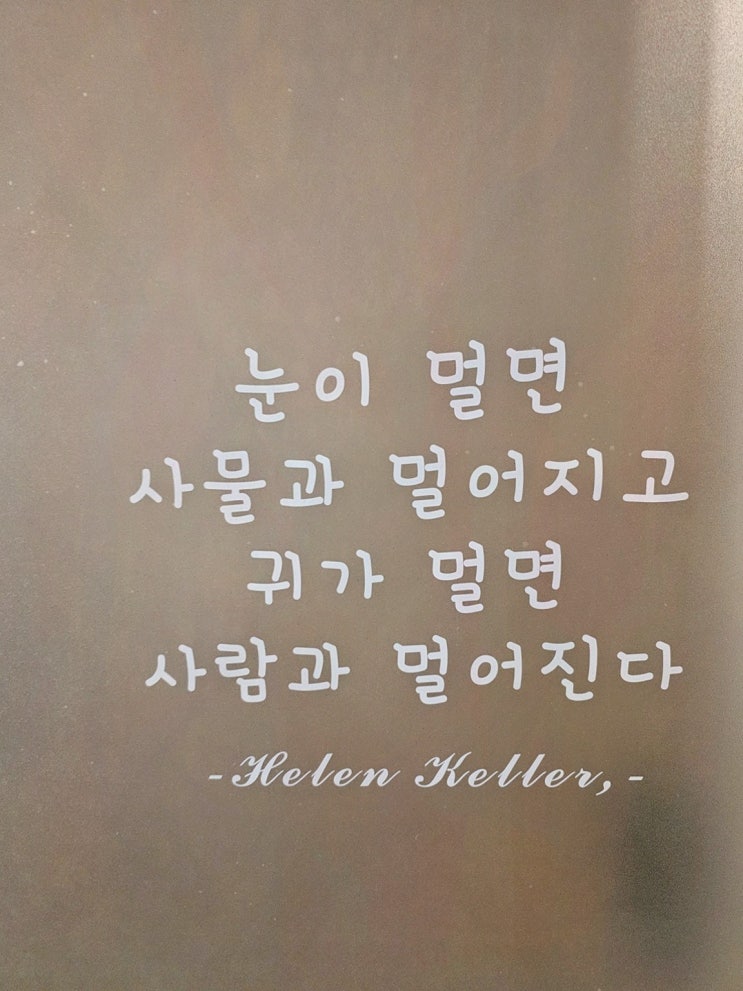 눈이 멀면
사물과 멀어지고
귀가 멀면
사람과 멀어진다
-Helen Keller,-